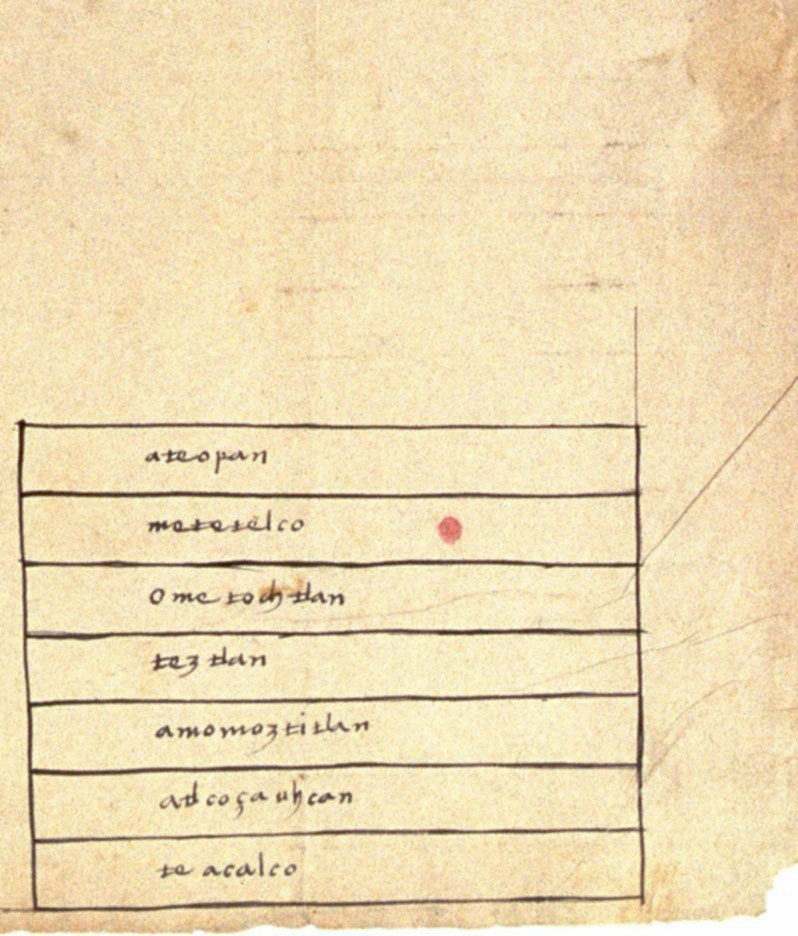 ateopan
metetelco
ometochtlan
teztlan
amomoztitlan
atlcoçauhcan
te acalco